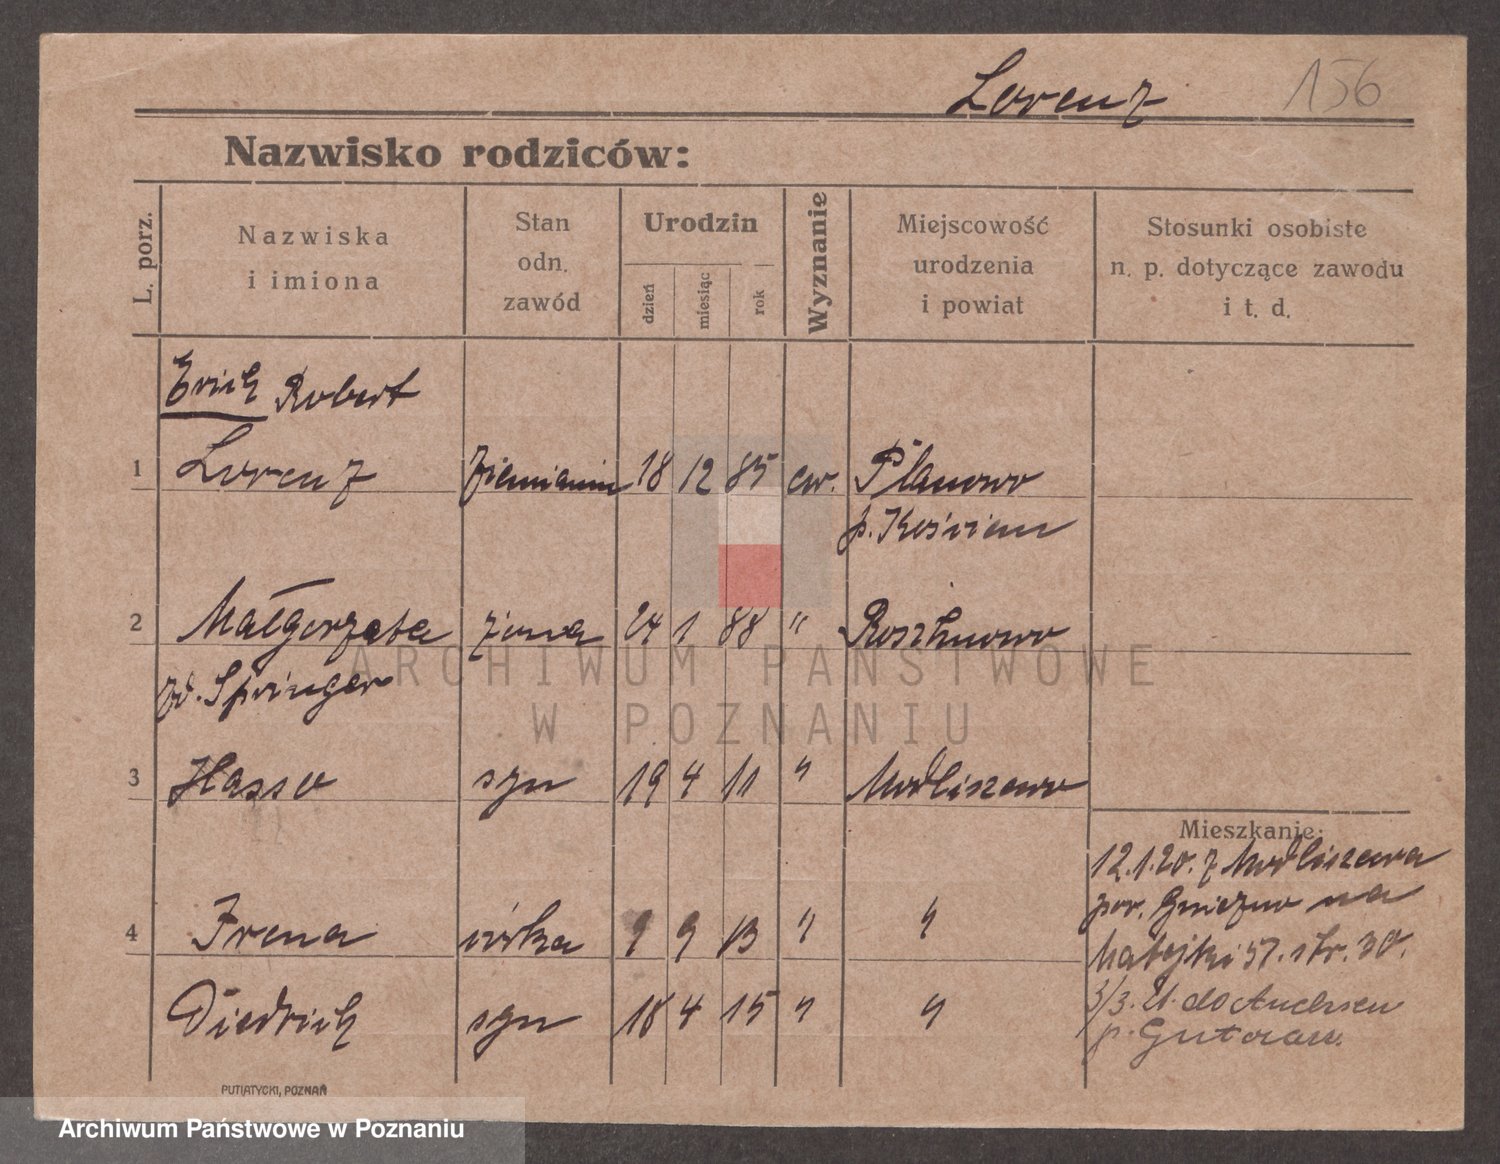 Lorenz 156
Nazwisko rodziców:
L. porz.
Nazwiska
i imiona
Stan
odn.
zawód
Urodzin
dzień
miesiąc
rok
Wyznanie
Miejscowość
urodzenia
i powiat
Stosunki osobiste
n. p. dotyczące zawodu
i t. d.
Erich Robert
1 Lorenz ziemianin 18 12 85 ew. Planowo
p. Kościan
2 Małgorzata żona 24 1 88 " Roszkowo
zd. Springer
3 Hasso syn 19 4 11 " Modliszewo
Mieszkanie:
12.1.20. z Modliszewa
pow. Gniezno na
4 Irena córka 9 9 13 " "
Matejki 57. str. 30.
Diedrich syn 18 4 15 " "
3/3. 21. do
p.
PUTIATYCKI, POZNAŃ
ARCHIWUM PAŃSTWOWE
W POZNANIU
Archiwum Państwowe w Poznaniu